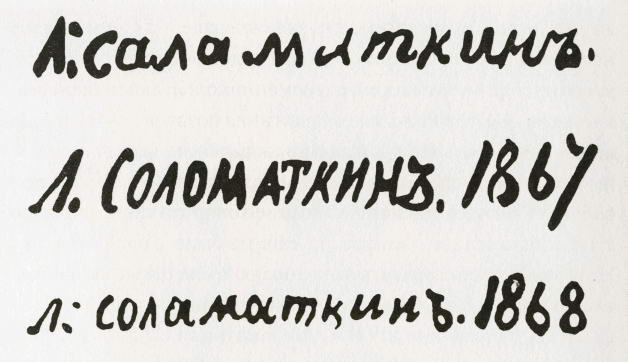 Л: саламаткинъ.
Л. СОЛОМАТКИНЪ. 1867
л: соламаткинъ. 1868